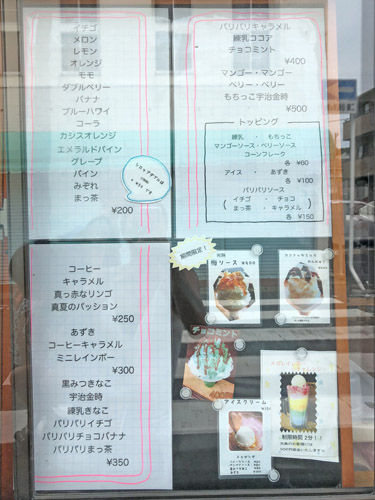 イチゴ
メロン
レモン
オレンジ
モモ
ダブルベリー
バナナ
ブルーハワイ
コーラ
カシスオレンジ
エメラルドパイン
グレープ
パイン
みぞれ
まっ茶
¥200
パリパリキャラメル
練乳ココア
チョコミント
¥400
マンゴー・マンゴー
ベリー・ベリー
もちっこ宇治金時
¥500
トッピング
練乳 ・ もちっこ
マンゴーソース・ベリーソース
コーンフレーク
各 ¥60
アイス ・ あずき
各 ¥100
パリパリソース
( イチゴ ・ チョコ
まっ茶 ・ キャラメル )
各 ¥150
コーヒー
キャラメル
真っ赤なリンゴ
真夏のパッション
¥250
あずき
コーヒーキャラメル
ミニレインボー
¥300
黒みつきなこ
宇治金時
練乳きなこ
パリパリイチゴ
パリパリチョコバナナ
パリパリまっ茶
¥350
期間限定!
梅ソース
チョコミント
アイスクリーム
制限時間 2分!!